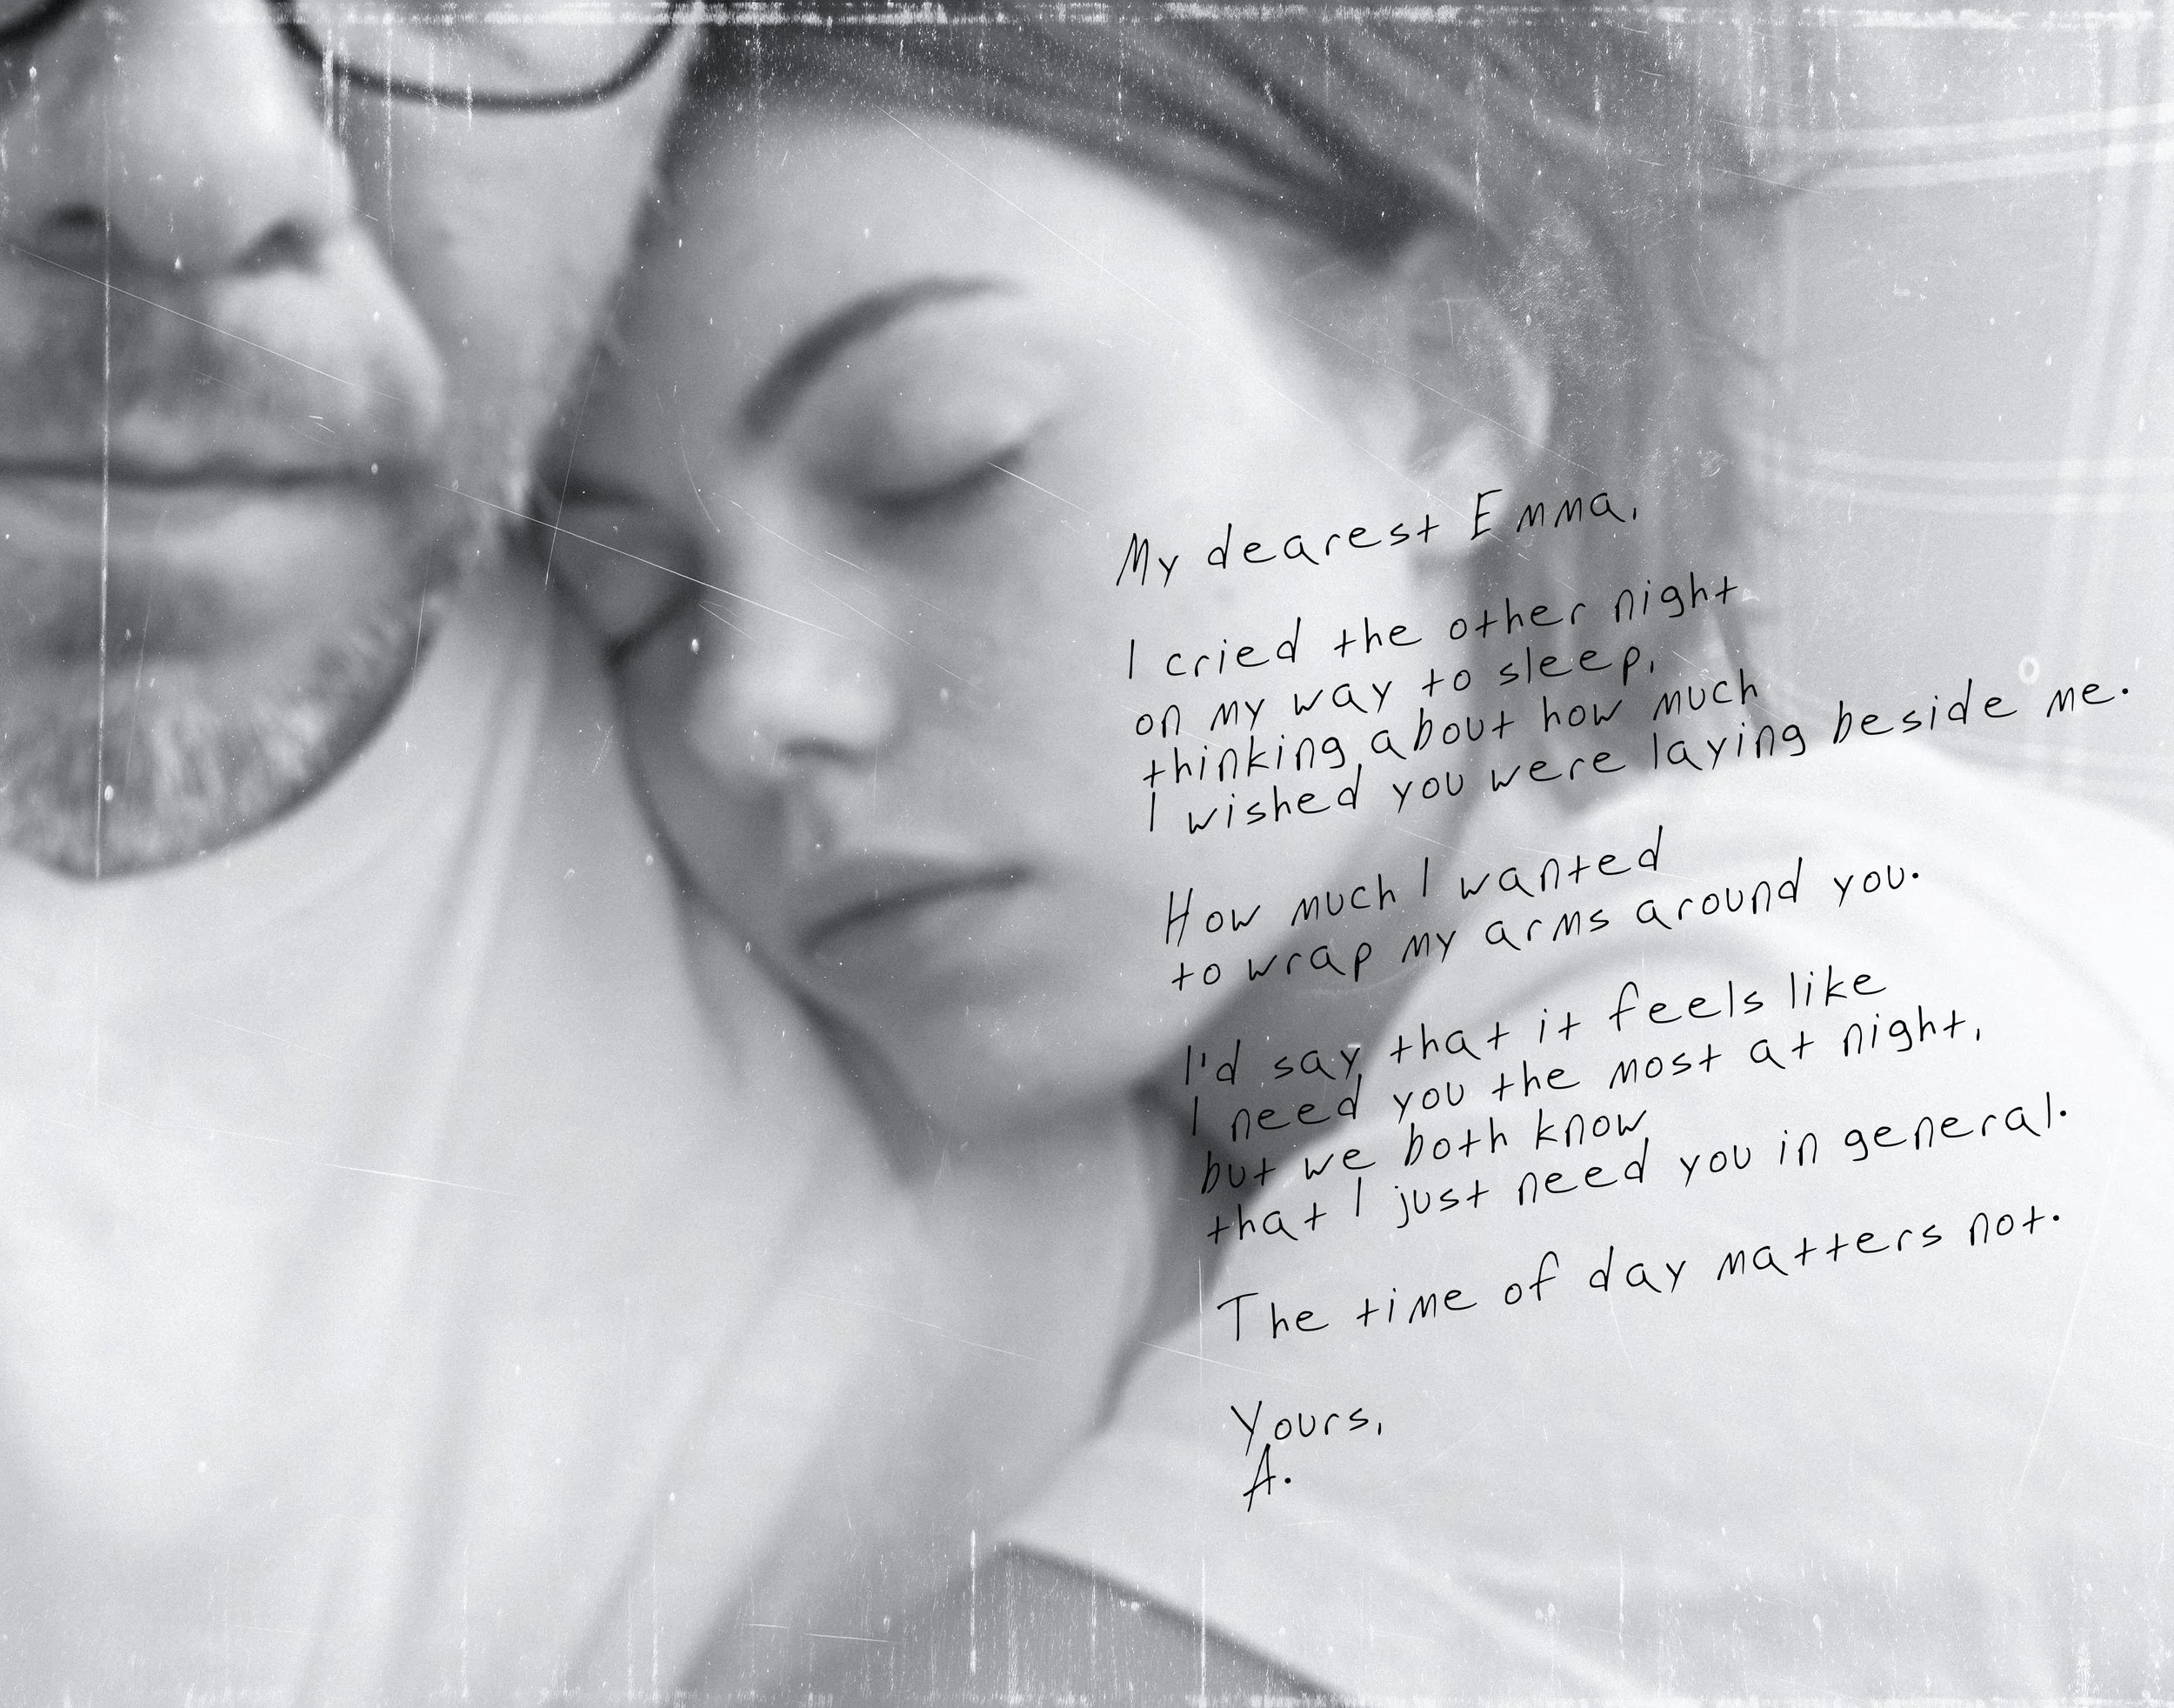 My dearest Emma,
I cried the other night
on my way to sleep,
thinking about how much
I wished you were laying beside me.
How much I wanted
to wrap my arms around you.
I'd say that it feels like
I need you the most at night,
but we both know
that I just need you in general.
The time of day matters not.
Yours,
A.